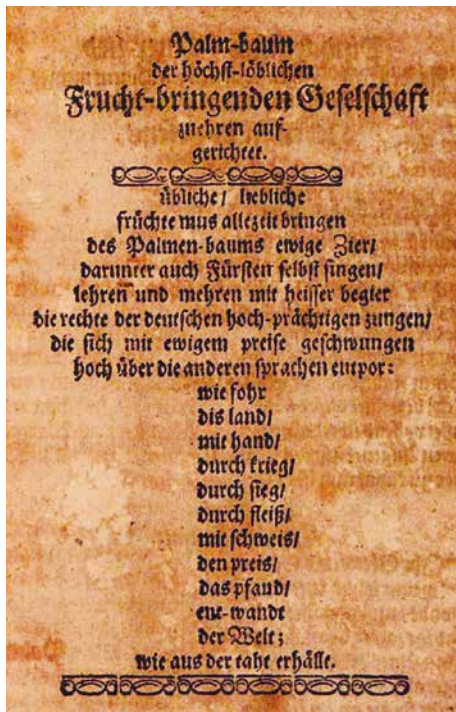 Palm-baum
der höchst-löblichen
Frucht-bringenden Geselschaft
zuehren auf-
gerichtet.
übliche / liebliche
früchte mus allezeit bringen
des Palmen-baums ewige Zier /
darunter auch Fürsten selbst singen /
lehren und mehren mit heisser begier
die rechte der deutschen hoch-prächtigen zungen /
die sich mit ewigem preise geschwungen
hoch über die anderen sprachen entpor:
wie fohr
dis land /
mit hand /
durch krieg /
durch sieg /
durch fleiß /
mit schweis /
den preis /
das pfand /
ent-wandt
der Welt;
wie aus der taht erhällt.